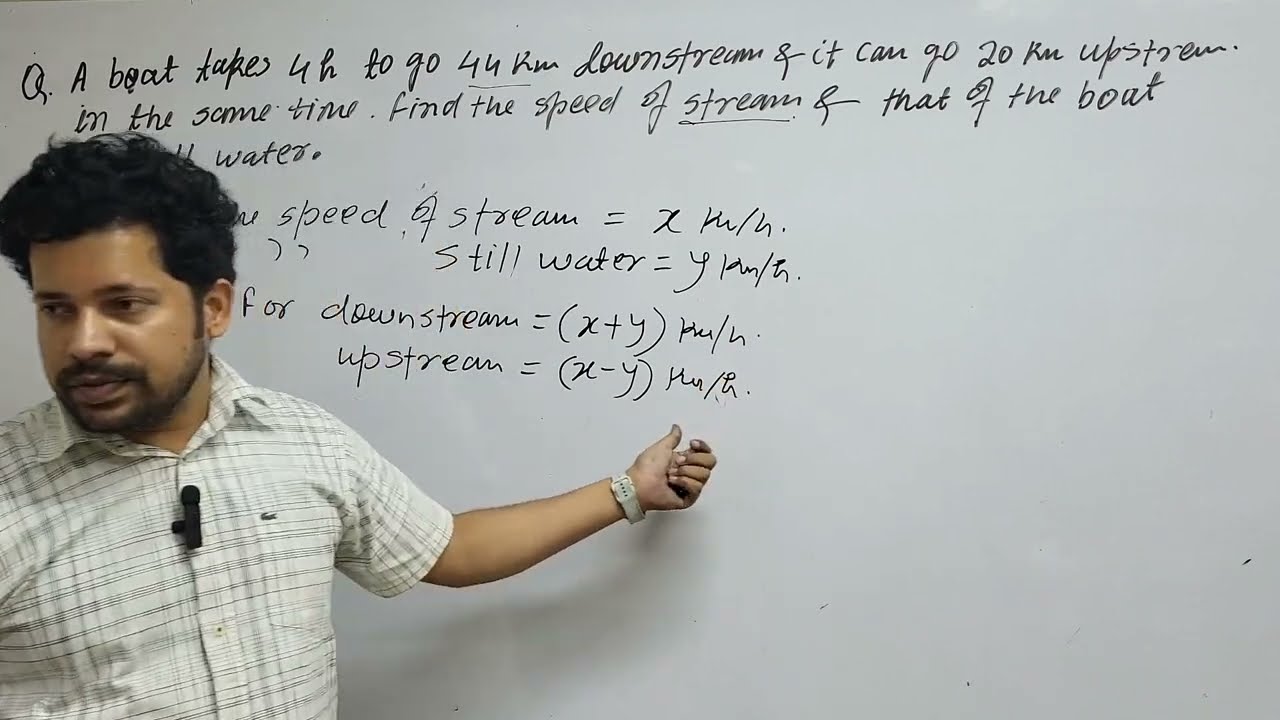 Q. A boat takes 4h to go 44 Km downstream & it can go 20 Km upstrem.
in the same time. find the speed of stream & that of the boat
water.
speed of stream = x km/h.
,, still water = y km/h.
for downstream = (x+y) km/h.
upstream = (x-y) km/h.